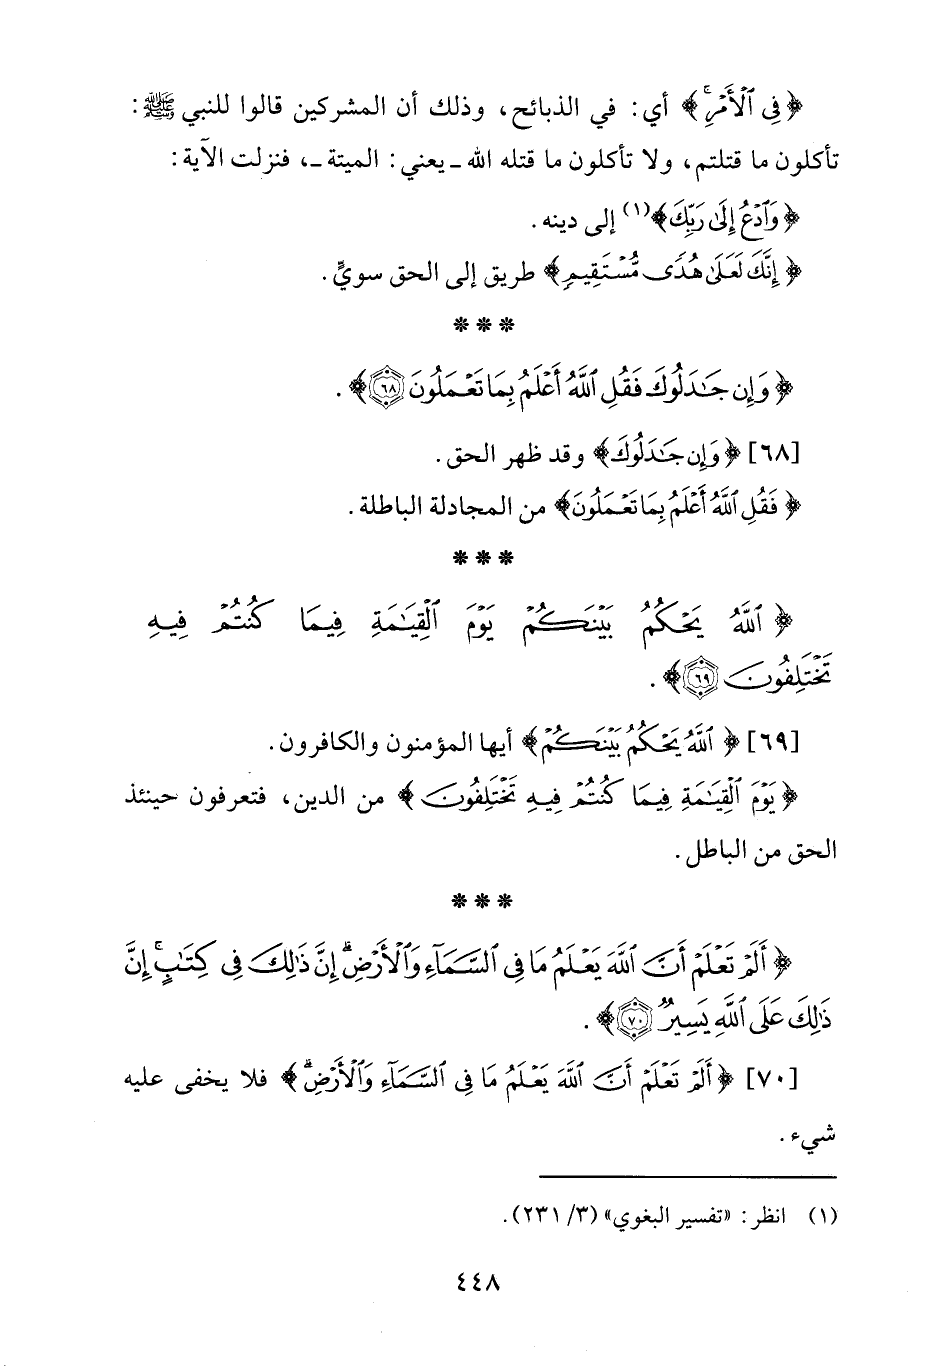 ﴿فِي ٱلْأَمْرِ ۚ﴾ أي: في الذبائح، وذلك أن المشركين قالوا للنبي ﷺ:
تأكلون ما قتلتم، ولا تأكلون ما قتله الله ـ يعني: الميتة ـ، فنزلت الآية:
﴿وَٱدْعُ إِلَىٰ رَبِّكَ﴾(١) إلى دينه.
﴿إِنَّكَ لَعَلَىٰ هُدًى مُّسْتَقِيمٍ﴾ طريق إلى الحق سويٍّ.
***
﴿وَإِن جَـٰدَلُوكَ فَقُلِ ٱللَّهُ أَعْلَمُ بِمَا تَعْمَلُونَ ٦٨﴾.
[٦٨] ﴿وَإِن جَـٰدَلُوكَ﴾ وقد ظهر الحق.
﴿فَقُلِ ٱللَّهُ أَعْلَمُ بِمَا تَعْمَلُونَ﴾ من المجادلة الباطلة.
***
﴿ٱللَّهُ يَحْكُمُ بَيْنَكُمْ يَوْمَ ٱلْقِيَـٰمَةِ فِيمَا كُنتُمْ فِيهِ
تَخْتَلِفُونَ ٦٩﴾.
[٦٩] ﴿ٱللَّهُ يَحْكُمُ بَيْنَكُمْ﴾ أيها المؤمنون والكافرون.
﴿يَوْمَ ٱلْقِيَـٰمَةِ فِيمَا كُنتُمْ فِيهِ تَخْتَلِفُونَ﴾ من الدين، فتعرفون حينئذ
الحق من الباطل.
***
﴿أَلَمْ تَعْلَمْ أَنَّ ٱللَّهَ يَعْلَمُ مَا فِي ٱلسَّمَآءِ وَٱلْأَرْضِ ۗ إِنَّ ذَٰلِكَ فِي كِتَـٰبٍ ۚ إِنَّ
ذَٰلِكَ عَلَى ٱللَّهِ يَسِيرٌ ٧٠﴾.
[٧٠] ﴿أَلَمْ تَعْلَمْ أَنَّ ٱللَّهَ يَعْلَمُ مَا فِي ٱلسَّمَآءِ وَٱلْأَرْضِ ۗ﴾ فلا يخفى عليه
شيء.
(١) انظر: «تفسير البغوي» (٣/ ٢٣١).
٤٤٨